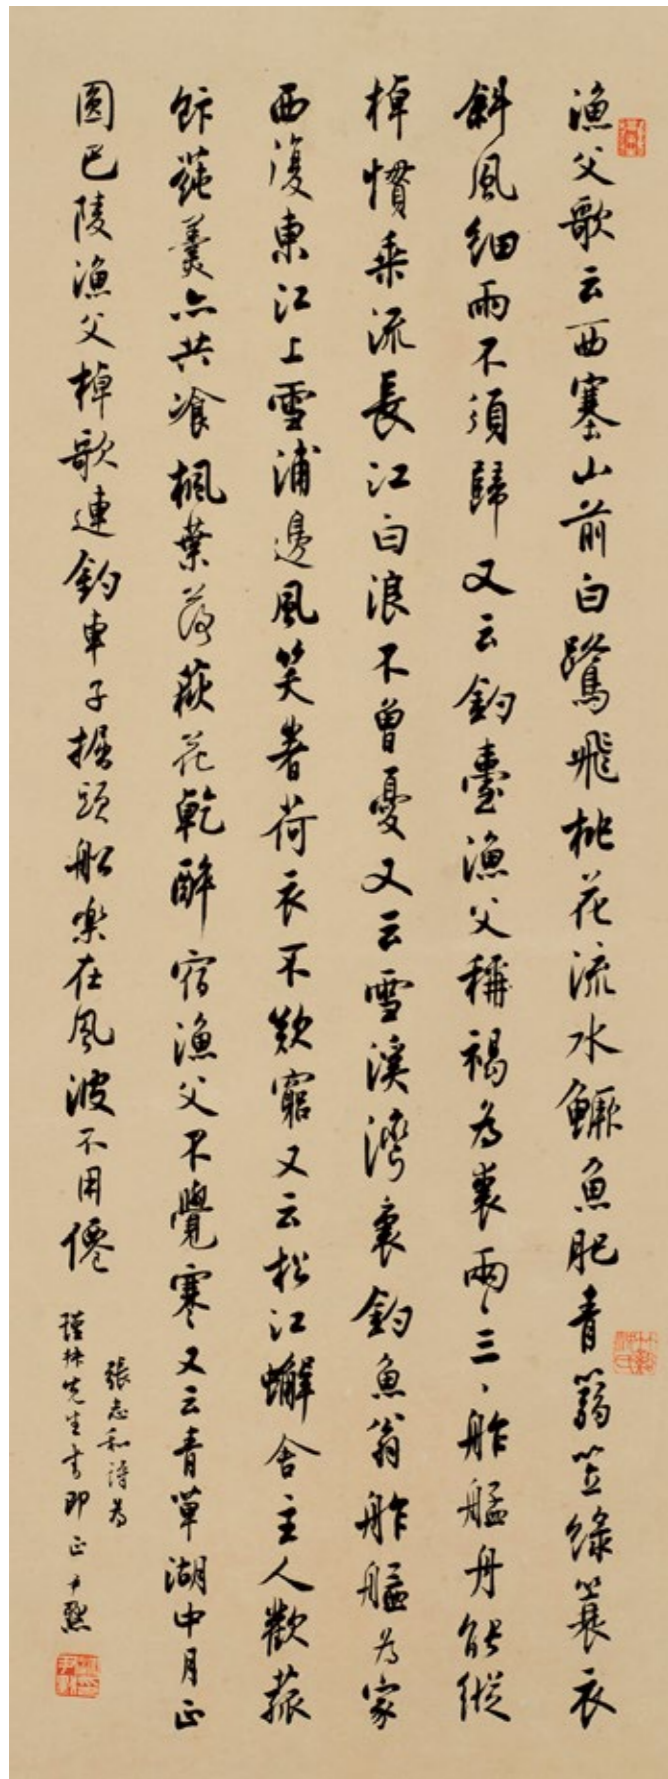 漁父歌云西塞山前白鷺飛桃花流水鱖魚肥青篛笠綠蓑衣
斜風細雨不須歸又云釣臺漁父褐為裘兩兩三三舴艋舟能縱
棹慣乘流長江白浪不曾憂又云雪溪灣裏釣魚翁舴艋為家
西復東江上雪浦邊風笑著荷衣不歎窮又云松江蟹舍主人歡菰
飰蓴羹亦共飡楓葉落荻花乾醉宿漁父不覺寒又云青草湖中月正
圓巴陵漁父棹歌連釣車子掘頭船樂在風波不用僊
張志和詩為
瑾林先生書即正尹默